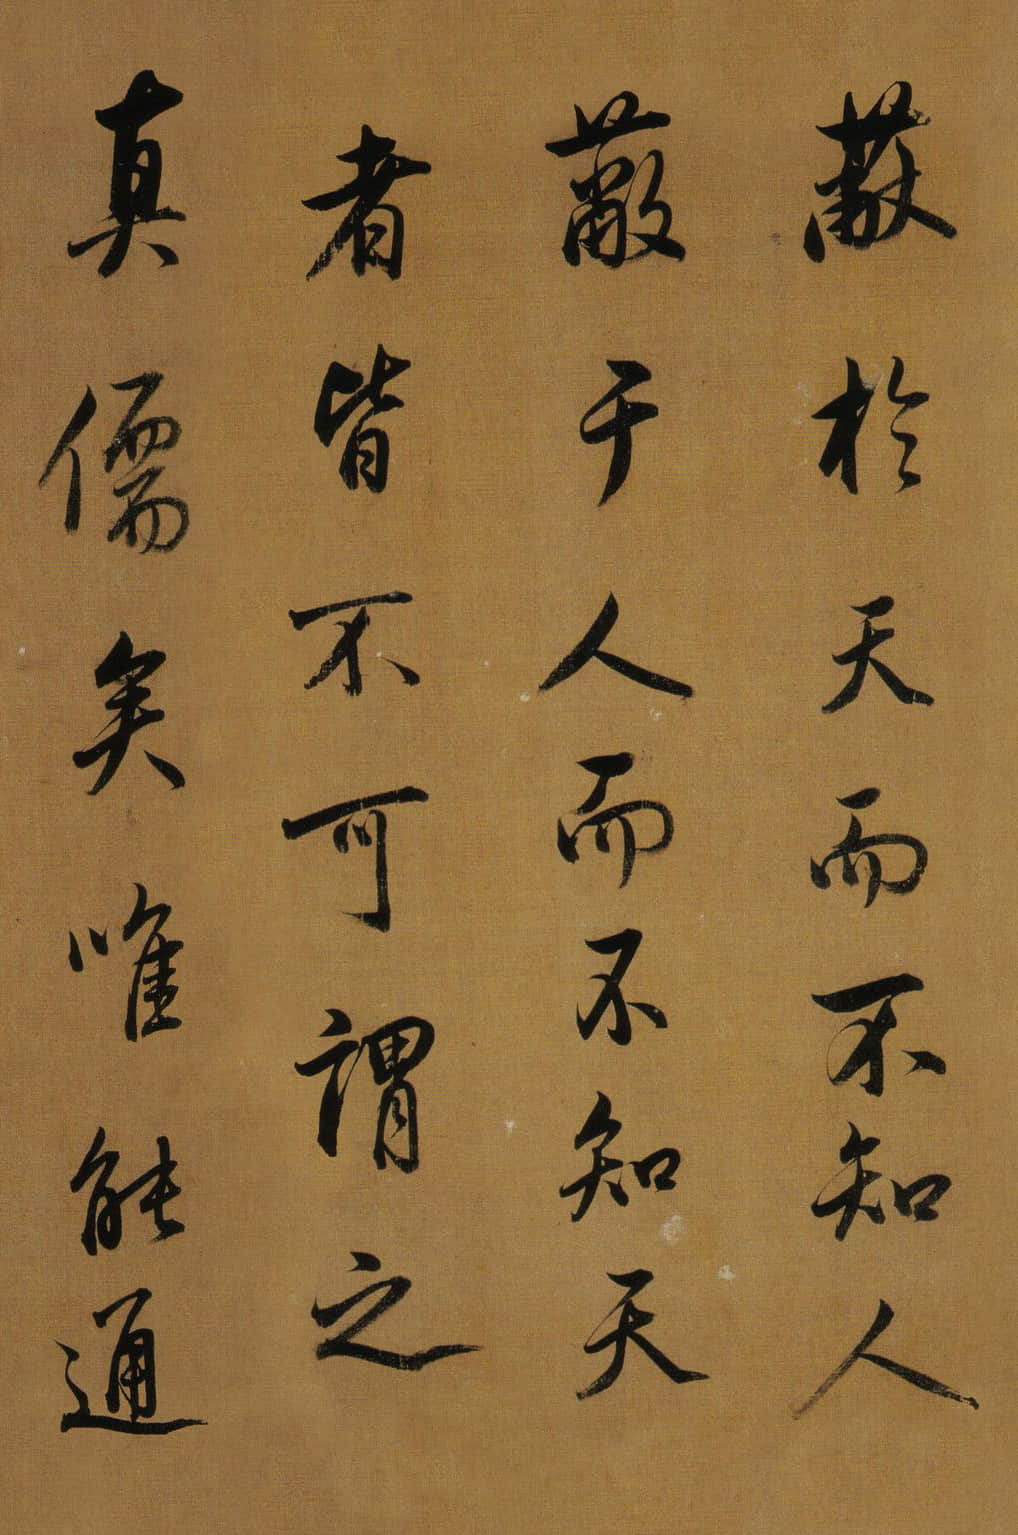 蔽於天而不知人
蔽于人而不知天
者皆不可謂之
真儒矣唯能通